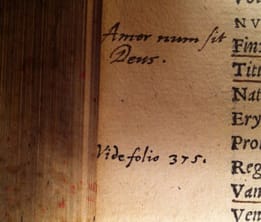 Amor num sit
Deus.
Vide folio 375.
NV
Finx
Titt
Nat
Ery
Prol
Reg
Van
Ven